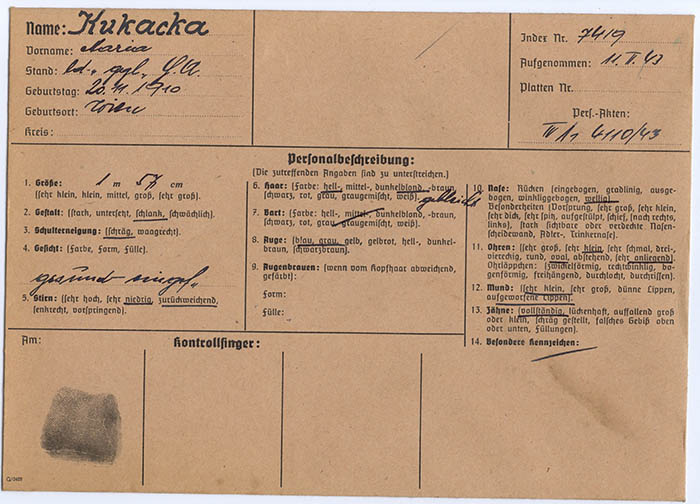 Name: Kukacka
Vorname: Maria
Stand: led., ggl., H.A.
Geburtstag: 20.11.1910
Geburtsort: Wien
Kreis:
Index Nr. 7419
Aufgenommen: 11.V.43
Platten Nr.
Pers.-Akten:
IV A 4110/43
Personalbeschreibung:
(Die zutreffenden Angaben sind zu unterstreichen.)
1. Größe: 1 m 57 cm
(sehr klein, klein, mittel, groß, sehr groß).
2. Gestalt: (stark, untersetzt, schlank, schwächlich).
3. Schulterneigung: (schräg, waagrecht).
4. Gesicht: (Farbe, Form, Fülle).
gesund
5. Stirn: (sehr hoch, sehr niedrig, zurückweichend,
senkrecht, vorspringend).
6. Haar: (Farbe: hell-, mittel-, dunkelblond, -braun,
schwarz, rot, grau, graugemischt, weiß).
7. Bart: (Farbe: hell-, mittel-, dunkelblond, -braun,
schwarz, rot, grau, graugemischt, weiß).
8. Auge: (blau, grau, gelb, gelbrot, hell-, dunkel-
braun, schwarzbraun).
9. Augenbrauen: (wenn vom Kopfhaar abweichend,
gefärbt):
Form:
Fülle:
10. Nase: Rücken (eingebogen, gradlinig, ausge-
bogen, winkliggebogen, wellig).
Besonderheiten (Vorsprung, sehr groß, sehr klein,
sehr dick, sehr spitz, aufgestülpt, schief, (nach rechts,
links), stark sichtbare oder verdeckte Nasen-
scheidewand, Adler-, Trinkernase).
11. Ohren: (sehr groß, sehr klein, sehr schmal, drei-,
viereckig, rund, oval, abstehend, sehr anliegend)
Ohrläppchen: (zwickelförmig, rechtwinklig, bo-
genförmig, freihängend, durchlocht, durchrissen).
12. Mund: (sehr klein, sehr groß, dünne Lippen,
aufgeworfene Lippen).
13. Zähne: (vollständig, lückenhaft, auffallend groß
oder klein, schräg gestellt, falsches Gebiß oben
oder unten, Füllungen).
14. Besondere Kennzeichen:
Am:
Kontrollfinger: